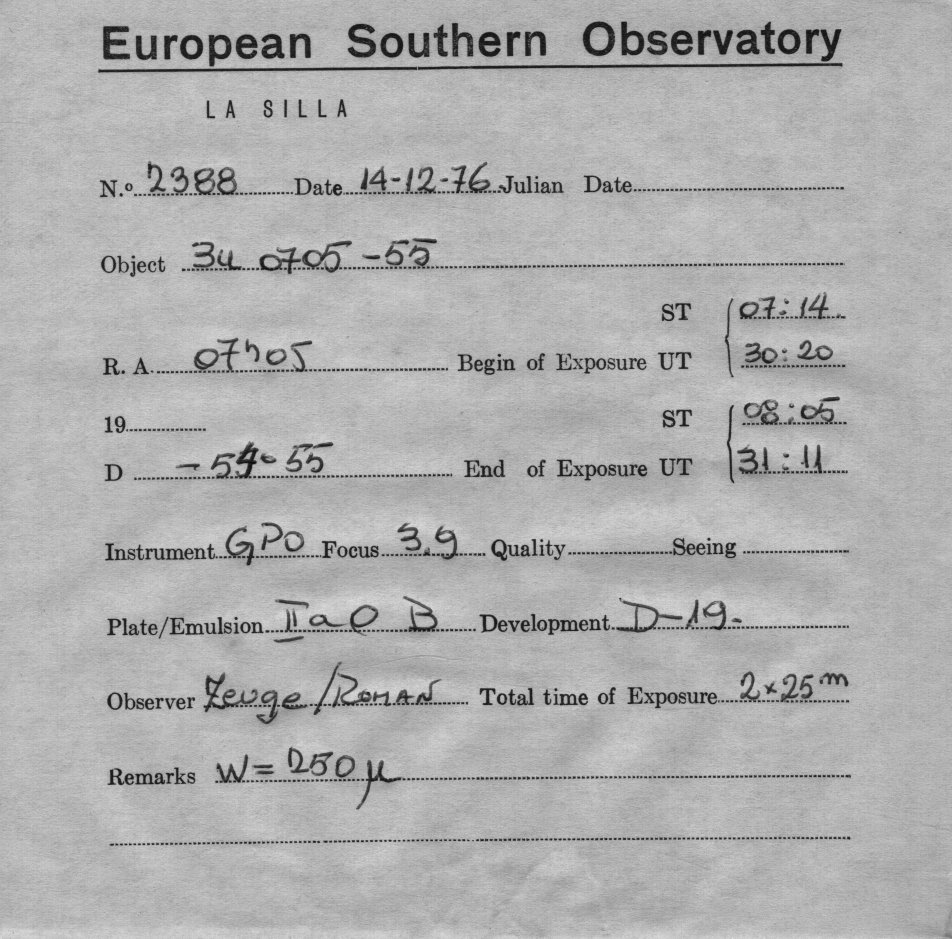 European Southern Observatory
LA SILLA
N.º 2388 Date 14-12-76 Julian Date
Object 3u 0705 -55
ST 07:14
R. A. 07h05 Begin of Exposure UT 30:20
19 ST 08:05
D -54° 55 End of Exposure UT 31:11
Instrument GPO Focus 3.9 Quality Seeing
Plate/Emulsion IIaO B Development D-19-
Observer Zeuge/ROMAN Total time of Exposure 2x25m
Remarks W = 250 μ